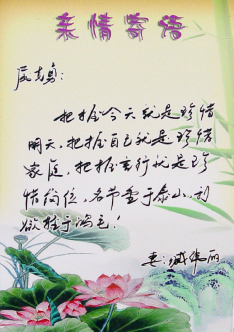 亲情寄语
志勇：
把握今天就是珍惜
明天，把握自己就是珍惜
家庭，把握言行就是珍
惜岗位，名节重于泰山，利
欲轻于鸿毛！
妻：臧 丽